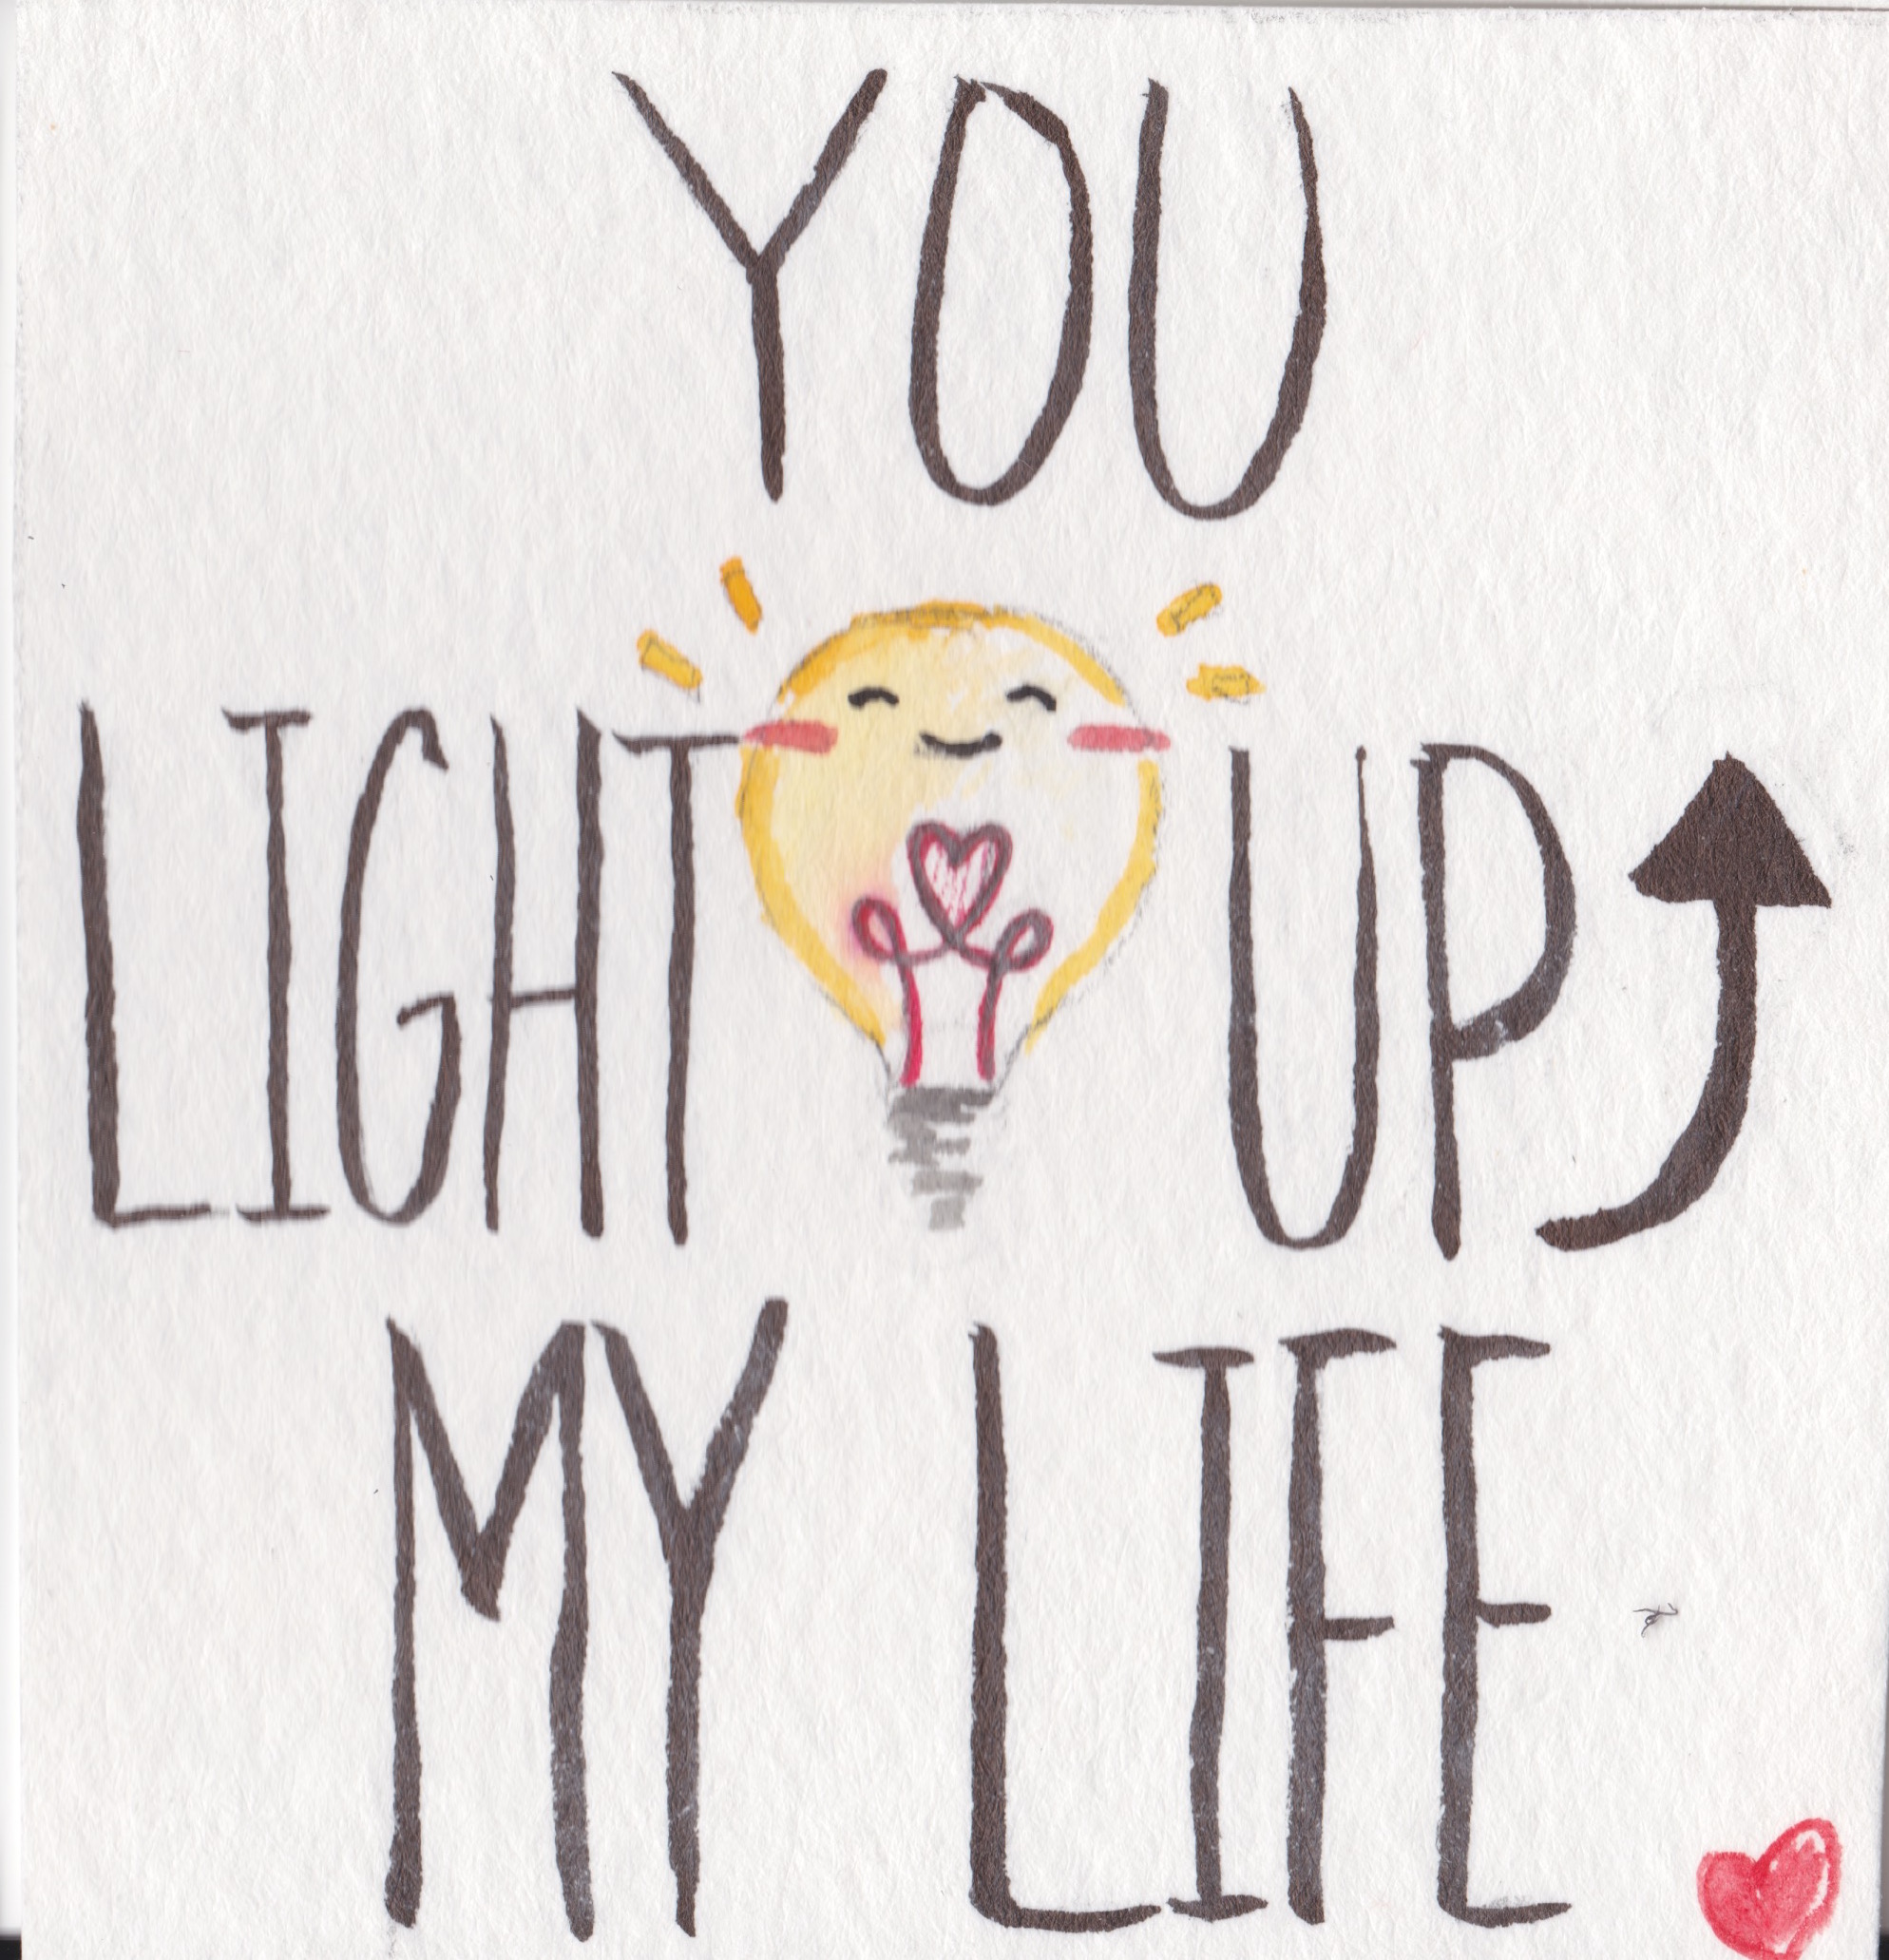 YOU
LIGHT UP
MY LIFE